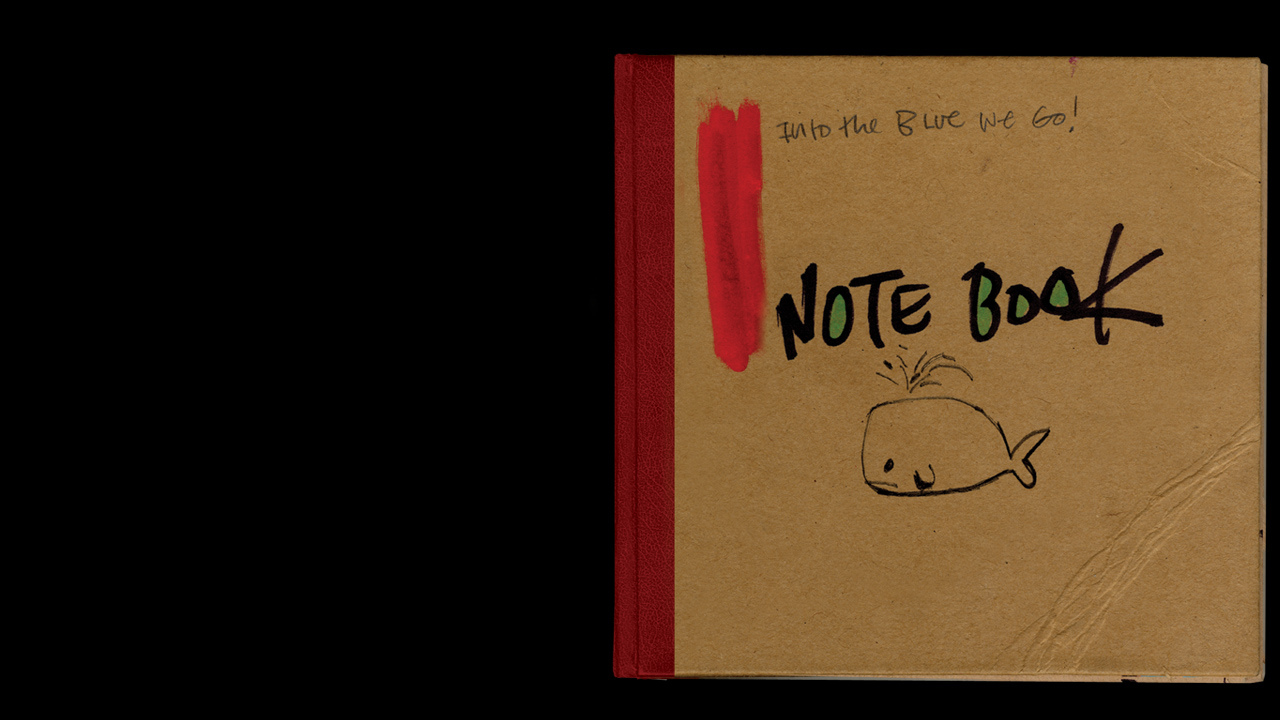 Into the Blue We Go!
NOTE BOOK